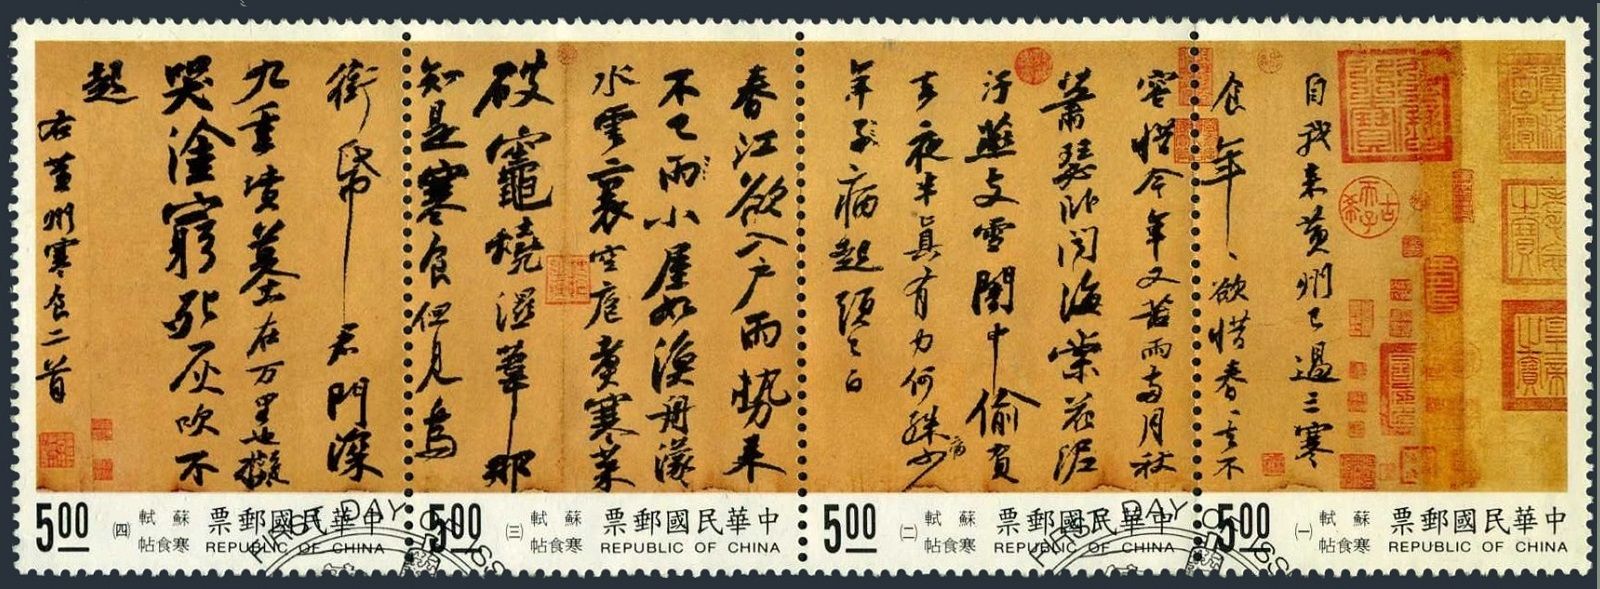 自我來黃州已過三寒
食年〻欲惜春〻去不
容惜今年又苦雨兩月秋
蕭瑟臥聞海棠花泥
汙燕支雪闇中偷負
去夜半真有力何殊少
病
年子病起頭已白
春江欲入戶雨勢來
不已雨小屋如漁舟濛
水雲裏空庖煮寒菜
破竈燒濕葦那
知是寒食但見烏
銜帋君門深
九重墳墓在万里也擬
哭塗窮死灰吹不
起
右黃州寒食二首
古希天子
中華民國郵票
REPUBLIC OF CHINA
蘇軾寒食帖
㈠
5.00
中華民國郵票
REPUBLIC OF CHINA
蘇軾寒食帖
㈡
5.00
中華民國郵票
REPUBLIC OF CHINA
蘇軾寒食帖
㈢
5.00
中華民國郵票
REPUBLIC OF CHINA
蘇軾寒食帖
㈣
5.00
FIRST DAY OF
FIRST DAY OF